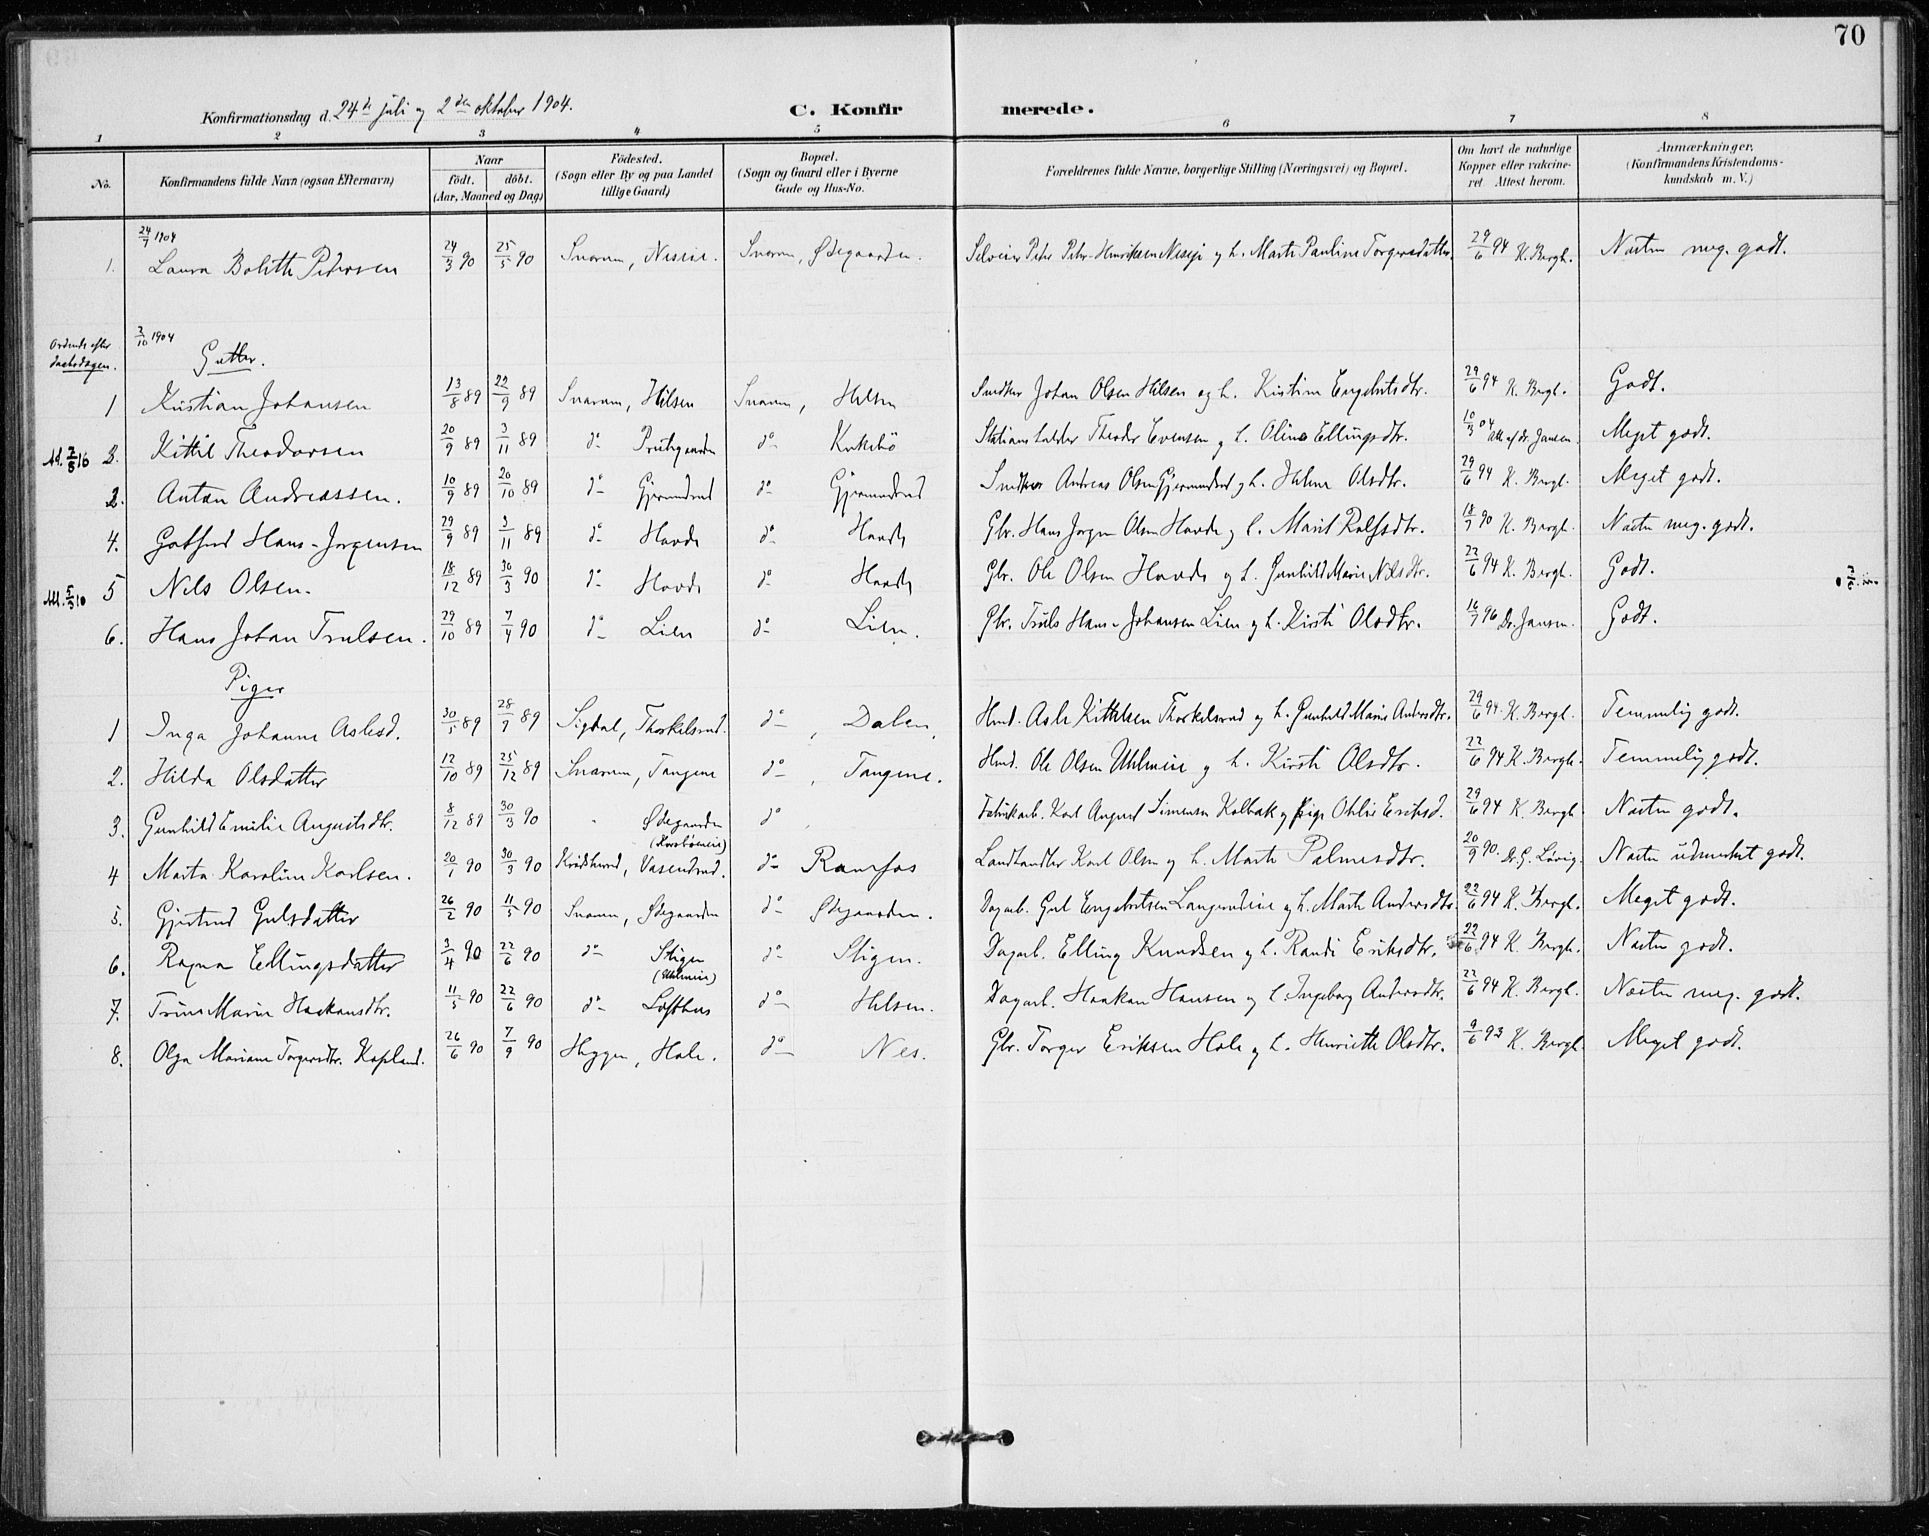 70
Konfirmationsdag d. 24de juli og 2den oktober 1904. C. Konfirmerede.
1 2 3 4 5 6 7 8
No. Konfirmandens fulde Navn (ogsaa Efternavn) Naar födt. döbt. (Aar, Maaned og Dag) Födested. (Sogn eller By og paa Landet tillige Gaard) Bopæl. (Sogn og Gaard eller i Byerne Gade og Hus-No. Forældrenes fulde Navne, borgerlige Stilling (Næringsvei) og Bopæl. Om havt de naturlige Kopper eller vakcineret. Attest herom. Anmærkninger. (Konfirmandens Kristendomskundskab m. V.)
24/7 1904
1. Laura Bolette Petersen 24/3 90 25/5 90 Snarum, Neseie. Snarum, Ødegaarden. Selveier Peter Henriksen Neseje og h. Marte Pauline Torgersdatter. 29/6 94 K. Bergh. Næsten meg. godt.
2/10 1904
Ordnede efter daabsdagen. Gutter.
1 Kristian Johansen 13/8 89 22/9 89 Snarum, Hilsen Snarum, Hilsen Snedker Johan Olsen Hilsen og h. Kristine Engebritsdtr. 29/6 94 K. Bergh. Godt.
2. Kittil Theodorsen 20/9 89 3/11 89 do Prestegaarden do Kukebö Stationsholder Theodor Evensen og h. Oline Ellingsdtr. 10/3 04 Att. af dr. Jansen Meget godt.
3. Anton Andreassen. 10/9 89 20/10 89 do Gjermundrud do Gjermundrud Snedker Andreas Olsen Gjermundrud og h. Helene Olsdtr. 29/6 94 K. Bergh. Meget godt.
4. Gotfred Hans-Jørgensen 29/9 89 3/11 89 do Hovde do Hovde Gbr. Hans Jørgen Olsen Hovde og h. Marit Rolfsdtr. 18/7 90 K. Bergh. Næsten meg. godt.
5 Nils Olsen. 18/12 89 30/3 90 do Hovde do Hovde Gbr. Ole Olsen Hovde og h. Gunhild Marie Nilsdtr. 22/6 94 K. Bergh. Godt.
6. Hans Johan Trulsen. 29/10 89 7/4 90 do Lien do Lien. Gbr. Truls Hans-Johansen Lien og h. Kirsti Olsdtr. 16/7 96 Dr. Jansen. Godt.
Piger
1 Inga Johanne Aslesd. 30/5 89 28/7 89 Sigdal, Thorkelsrud. do, Dalen, Hmd. Asle Kittilsen Thorkelsrud og h. Gunhild Marie Andersdtr. 29/6 94. K. Bergh. Temmelig godt.
2. Hilda Olsdatter 12/10 89 25/12 89 Snarum, Tangene do, Tangene. Hmd. Ole Olsen Uhlneie og h. Kirsti Olsdtr. 22/6 94 K. Bergh. Temmelig godt.
3. Gunhild Emilie Augustsdtr. 8/12 89 30/3 90 Ødegaarden do Fabrikarb. Karl August Simensen Kolbak og pige Othlie Eriksd. 29/6 94 K. Bergh. Næsten godt.
4 Marta Karoline Karlsen. 20/1 90 30/3 90 Krødsherred, Vasendrud. do Ramfos Landhandler Karl Olsen og h. Marte Palmesdtr. 20/9 90. Næsten udmerket godt.
5. Gjertrud Gulsdatter 26/2 90 11/5 90 Snarum, Ødegaarden do Ødegaarden. Dagarb. Gul Engebretsen Langerudeie og h. Marte Andersdtr. 22/6 94 K. Bergh. Meget godt.
6. Ragna Ellingsdatter 3/4 90 22/6 90 do Stigen (Uhlneie) do Stigen. Dagarb. Elling Knudsen og h. Randi Eriksdtr. 22/6 94 K. Bergh. Næsten godt.
7. Trine Marie Haakansdtr. 11/5 90 22/6 90 do Lofthus do Hilsen. Dagarb. Haakan Hansen og h. Ingeborg Andersdtr. 22/6 94 K. Bergh. Næsten meg. godt.
8. Olga Mariane Torgersdtr. Kopland. 26/6 90 7/9 90 Hyggen, Hole. do Nes. Gbr. Torger Eriksen Hole og h. Henriette Olsdtr. 9/6 93 K. Bergh. Meget godt.